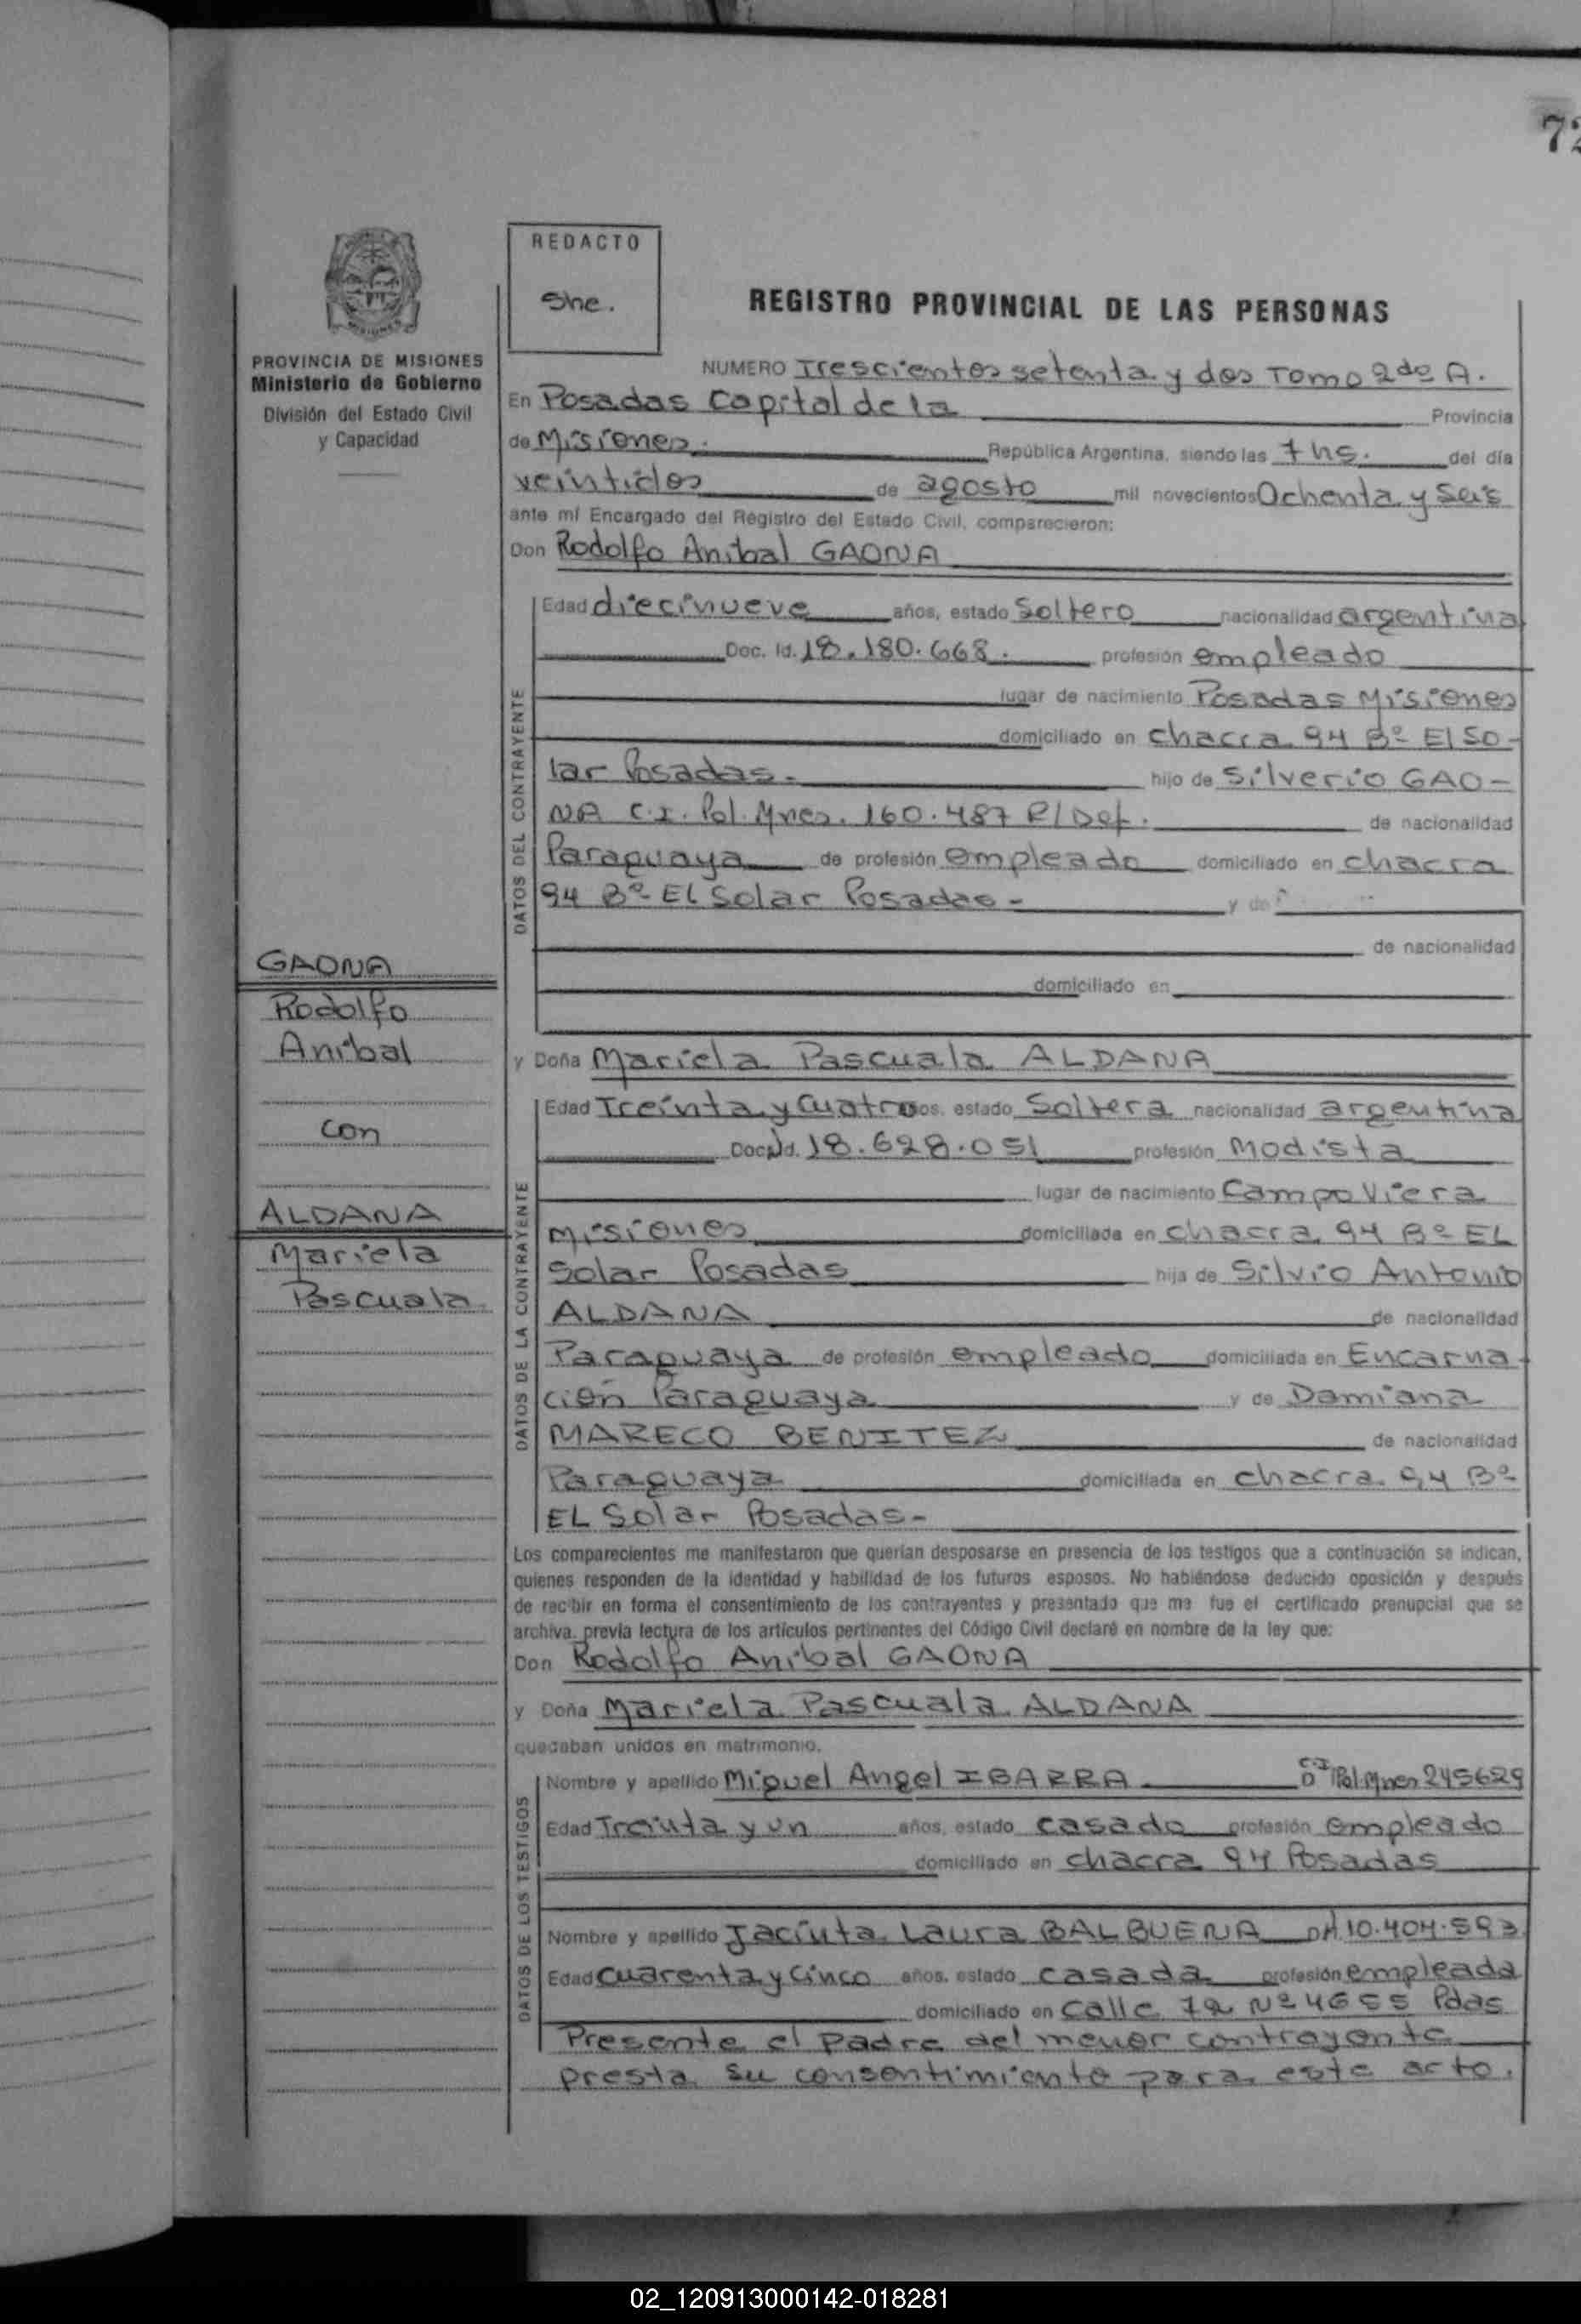 72
REDACTO
She.
PROVINCIA DE MISIONES
Ministerio de Gobierno
División del Estado Civil
y Capacidad
GAONA
Rodolfo
Anibal
con
ALDANA
Mariela
Pascuala
REGISTRO PROVINCIAL DE LAS PERSONAS
NUMERO Trescientos setenta y dos Tomo 2do A.
En Posadas Capital de la Provincia
de Misiones. República Argentina, siendo las 7 hs. del día
veintidos de agosto mil novecientos Ochenta y Seis
ante mí Encargado del Registro del Estado Civil, comparecieron:
Don Rodolfo Anibal GAONA
DATOS DEL CONTRAYENTE
Edad diecinueve años, estado Soltero nacionalidad argentina
Doc. Id. 18.180.668. profesión empleado
lugar de nacimiento Posadas Misiones
domiciliado en chacra 94 Bº El So-
lar Posadas. hijo de Silverio GAO-
NA C.I. Pol. Mnes. 160.487 R/Def. de nacionalidad
Paraguaya de profesión empleado domiciliado en chacra
94 Bº EL Solar Posadas- y de
de nacionalidad
domiciliado en
y Doña Mariela Pascuala ALDANA
DATOS DE LA CONTRAYENTE
Edad Treinta y Cuatro años, estado Soltera nacionalidad argentina
Doc. Id. 18.628.051 profesión Modista
lugar de nacimiento Campo Viera
Misiones domiciliada en chacra 94 Bº EL
Solar Posadas hija de Silvio Antonio
ALDANA de nacionalidad
Paraguaya de profesión empleado domiciliada en Encarna-
ción Paraguaya y de Damiana
MARECO BENITEZ de nacionalidad
Paraguaya domiciliada en chacra 94 Bº
EL Solar Posadas-
Los comparecientes me manifestaron que querían desposarse en presencia de los testigos que a continuación se indican,
quienes responden de la identidad y habilidad de los futuros esposos. No habiéndose deducido oposición y después
de recibir en forma el consentimiento de los contrayentes y presentado que me fue el certificado prenupcial que se
archiva, previa lectura de los artículos pertinentes del Código Civil declaré en nombre de la ley que:
Don Rodolfo Anibal GAONA
y Doña Mariela Pascuala ALDANA
quedaban unidos en matrimonio.
DATOS DE LOS TESTIGOS
Nombre y apellido Miguel Angel IBARRA CI Pol Mnes 245629
Edad Treinta y un años, estado casado profesión empleado
domiciliado en chacra 94 Posadas
Nombre y apellido Jacinta Laura BALBUENA 10.404.593
Edad Cuarenta y Cinco años, estado casada profesión empleada
domiciliado en Calle 72 Nº 4655 Pdas
Presente el padre del menor contrayente
presta su consentimiento para este acto.
02_120913000142-018281